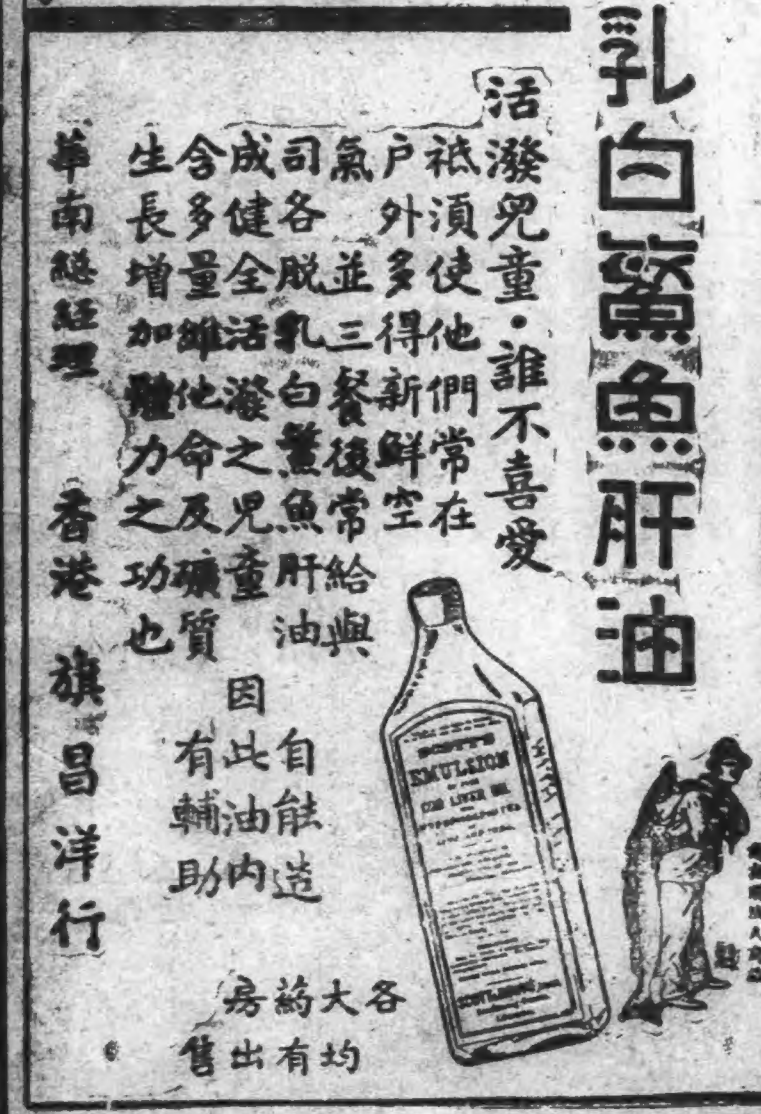 乳白鰵魚肝油
活潑兒童・誰不喜愛
祗須使他們常在
户外多得新鮮空
氣並三餐後常給與
司各脱乳白鰵魚肝油自能造
成健全活潑之兒童因此油内
含多量維他命及礦質有輔助
生長增加體力之功也
華南總經理 香港 旗昌洋行
各大葯房
均有出售
SCOTT'S
EMULSION
COD LIVER OIL